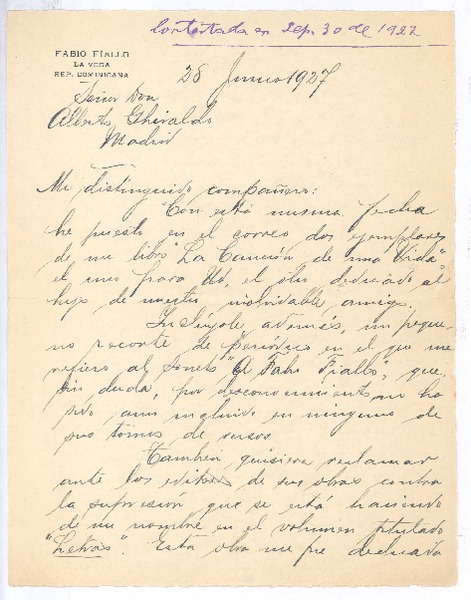 Contestada en Sep. 30 de 1927
FABIO FIALLO
LA VEGA
REP. DOMINICANA
25 Junio 1927
Señor Don
Alberto Ghiraldo
Madrid
Mi distinguido compañero:
Con esta misma fecha
he puesto en el correo dos ejemplares
de mi libro "La Canción de una Vida"
el uno para Ud, el otro dedicado al
hijo de nuestro inolvidable amigo.
Inclúyole, además, un peque-
no recorte de periódico en el que me
refiero al soneto "A Fabio Fiallo", que,
sin duda, por desconocimiento, no ha
sido aun incluido en ninguno de
sus tomos de versos
También quisiera reclamar
ante los editores de sus obras contra
la supresión que se está haciendo
de mi nombre en el volumen titulado
"Letras". Esta obra me fue dedicada